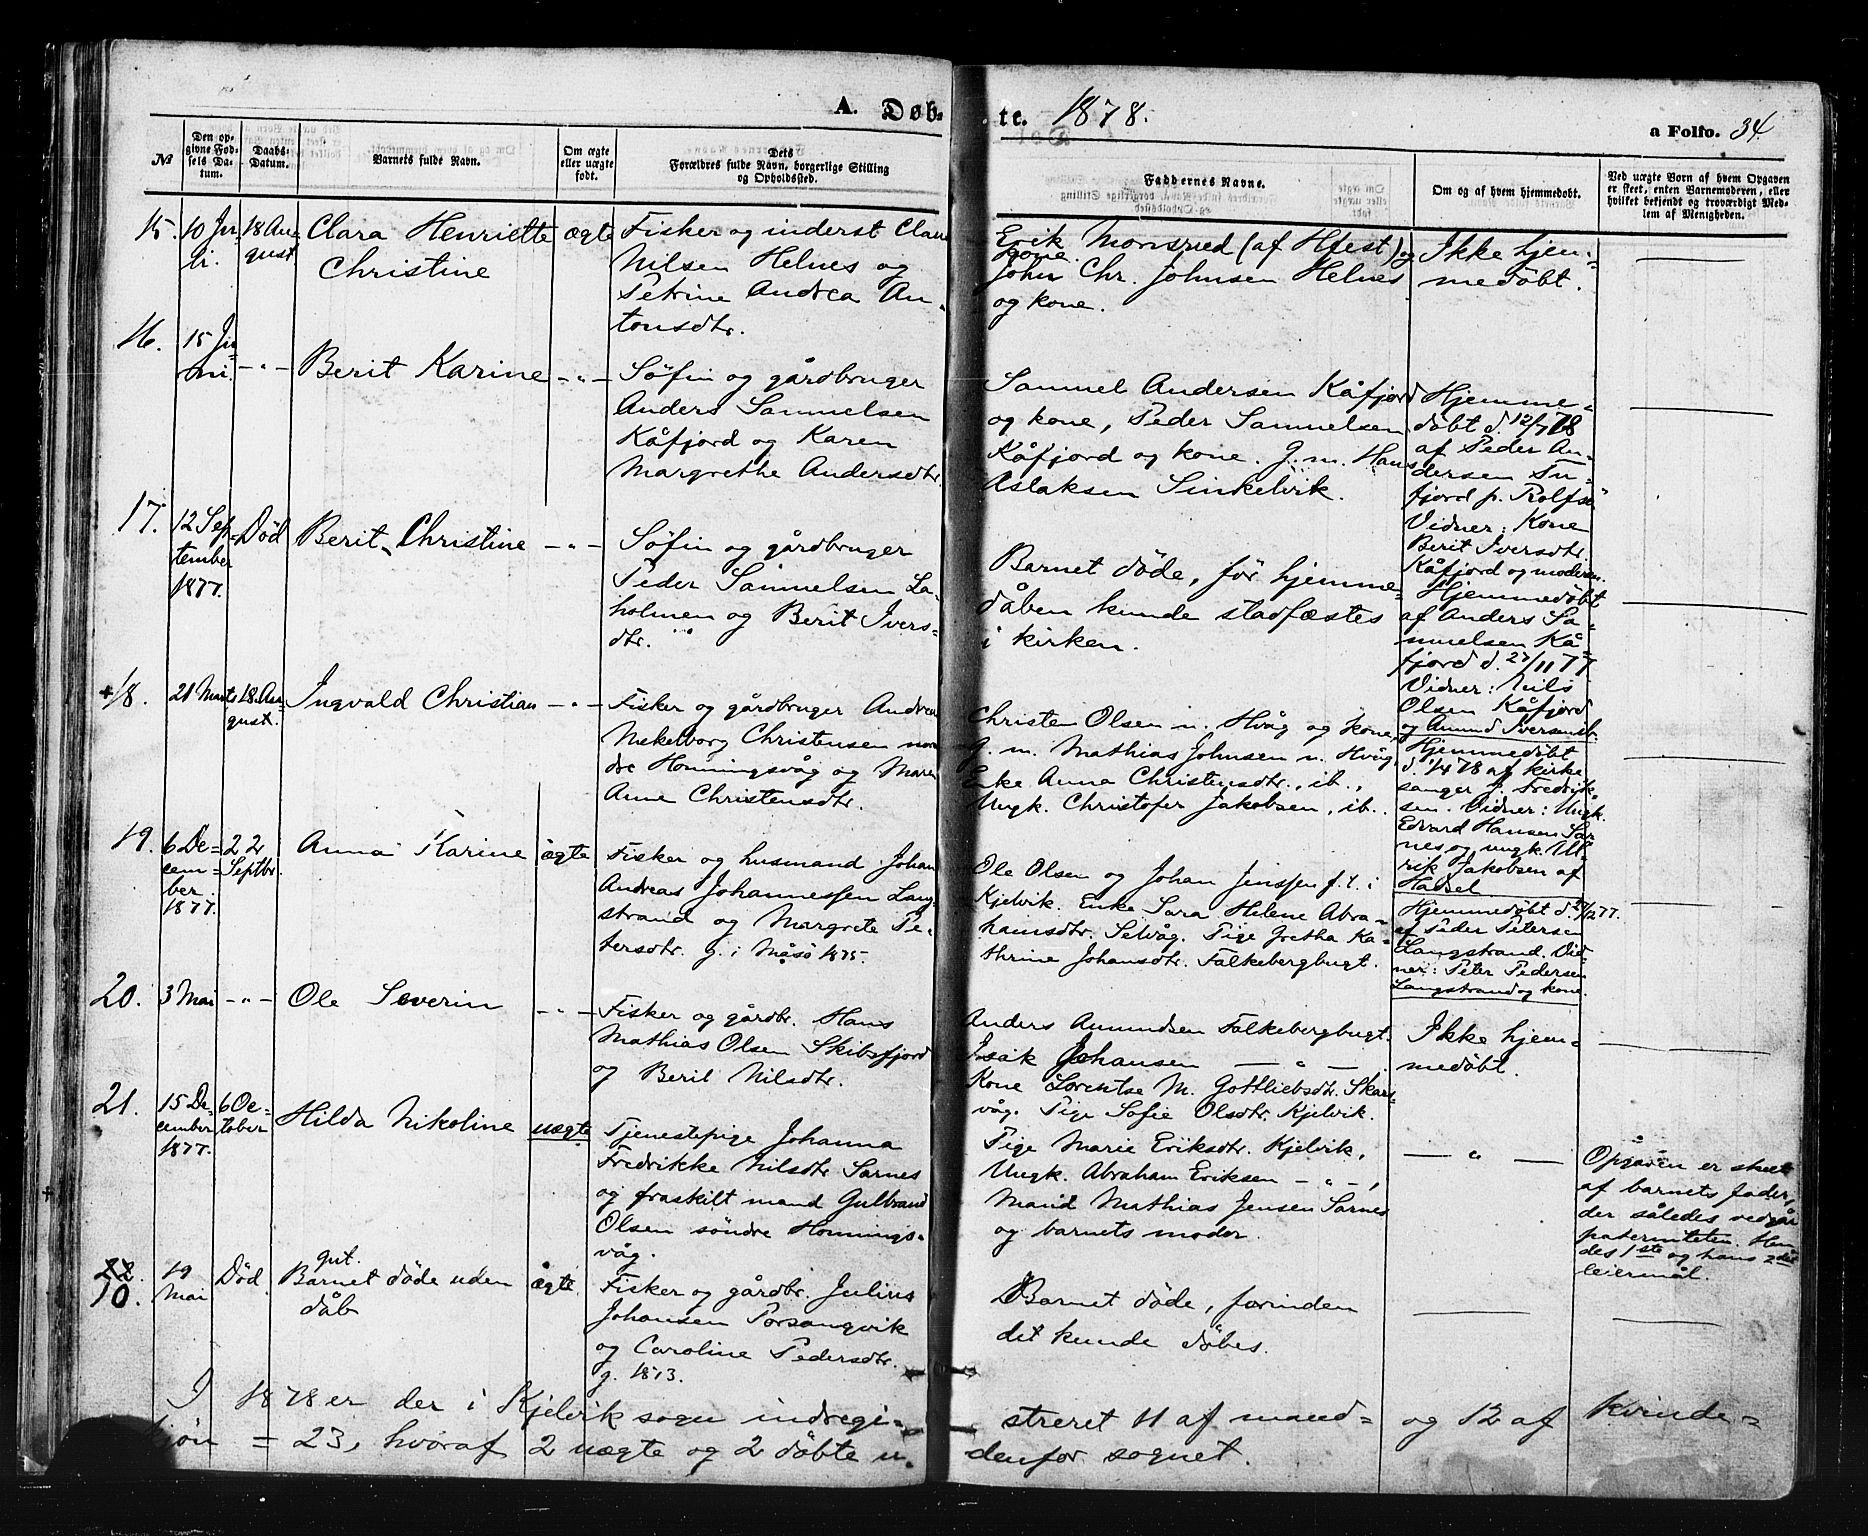 A. Døb-
te. 1878.
a Folio. 34
№
Den op-
givne Fød-
sels Da-
tum.
Daabs-
Datum.
Barnets fulde Navn.
Om ægte
eller uægte
født.
Dets
Forældres fulde Navn, borgerlige Stilling
og Opholdssted.
Faddernes Navne.
Om og af hvem hjemmedøbt.
Ved uægte Børn af hvem Opgaven
er skeet, enten Barnemoderen, eller
hvilket bekjendt og troværdigt Med-
lem af Menigheden.
15.
10 Ju-
li.
18 Au-
gust
Clara Henriette
Christine
ægte
Fisker og inderst Claus
Nilsen Helnes og
Petrine Andrea An-
tonsdtr.
Erik Monsrud (af Hfest) og
kone.
John Chr. Johnsen Helnes
og kone.
Ikke hjem-
medöbt.
16.
15 Ju-
ni.
-"-
Berit Karine
-"-
Söfin og gårdbruger
Anders Samuelsen
Kåfjord og Karen
Margrethe Andersdtr.
Samuel Andersen Kåfjord
og kone, Peder Samuelsen
Kåfjord og kone. G. m. Hans
Aslaksen Sinkelvik.
Hjemme-
döbt d. 12/7 78
af Peder An-
dersen Tu-
fjord p. Rolfsö
Vidner: Kone
Berit Iversdtr.
Kåfjord og moderen.
17.
12 Sep-
tember
1877.
Död
Berit Christine
-"-
Söfin og gårdbruger
Peder Samuelsen La-
holmen og Berit Ivers-
dtr.
Barnet döde, för hjemme-
dåben kunde stadfæstes
i kirken.
Hjemmedöbt
af Anders Sa-
muelsen Kå-
fjord d. 27/11 77
Vidner: Nils
Olsen Kåfjord
og Amund Iversen ib.
18.
21 Marts
18. Au-
gust.
Ingvald Christian
-"-
Fisker og gårdbruger Andreas
Mekelborg Christensen nor-
dre Honningsvåg og Maren
Anne Christensdtr.
Christen Olsen n. Hvåg og kone,
G. m. Mathias Johnsen n. Hvåg,
Enke Anna Christensdtr., ib.,
Ungk. Christofer Jakobsen, ib.
Hjemmedöbt
d. 1/4 78 af kirke-
sanger J. Fredrik-
sen. Vidner: Ungk.
Edvard Hansen Sar-
nes og ungk. Ul-
rik Jakobsen af
Hassel
19.
6 De-
cem-
ber
1877.
22
Septbr.
Anna Karine
ægte
Fisker og husmand Johan
Andreas Johannessen Lang-
strand og Margrete Pe-
tersdtr. g. i Måsö 1875.
Ole Olsen og Johan Jenssen f. t. i
Kjelvik. Enke Sara Helene Abra-
hamsdtr. Selvåg. Pige Gretha Ka-
thrine Johansdtr. Falkebergbugt.
Hjemmedöbt d. 27/12 77.
af Peder Petersen
Langstrand. Vid-
ner: Peter Pedersen
Langstrand og kone.
20.
3 Mai
-"-
Ole Severin
-"-
Fisker og gårdbr. Hans
Mathias Olsen Skibsfjord
og Berit Nilsdtr.
Anders Amundsen Falkebergbugt.
Isak Johansen -"-
Kone Lorentse M. Gottliebsdtr. Skars-
våg. Pige Sofie Olsdtr. Kjelvik.
Ikke hjem-
medöbt.
21.
15 De-
cember
1877.
6 Oc-
tober
Hilda Nikoline
uægte
Tjenestepige Johanna
Fredrikke Nilsdtr Sarnes
og fraskilt mand Gulbrand
Olsen söndre Honnings-
våg.
Pige Marie Eriksdtr. Kjelvik,
Ungk. Abraham Eriksen -"-,
Mand Mathias Jensen Sarnes
og barnets moder.
-"-
Opgaven er skeet
af barnets fader,
der således vedgår
paterniteten. Hen-
des 1ste og hans 2det
leiermål.
22.
10.
19
Mai
Död.
gut.
Barnet döde uden
dåb
ægte
Fisker og gårdbr. Julius
Johansen Porsangvik
og Caroline Pedersdtr.
g. 1873.
Barnet döde, forinden
det kunde döbes.
I 1878 er der i Kjelvik sogn indregi-
streret 11 af mand- og 12 af kvinde-
kjön = 23, hvoraf 2 uægte og 2 döbte u-
denfor sognet.